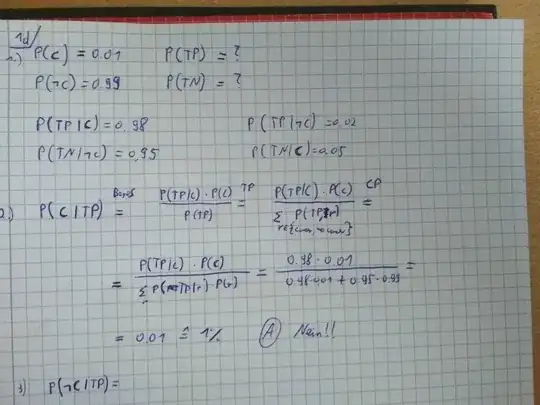 1d/
1.) P(C) = 0.01 P(TP) = ?
P(¬C) = 0.99 P(TN) = ?
P(TP|C) = 0.98 P(TP|¬C) = 0.02
P(TN|¬C) = 0.95 P(TN|C) = 0.05
2.) P(C|TP) Bayes = P(TP|C) · P(C) / P(TP) TP = P(TP|C) · P(C) / Σ P(TP,r) CP =
= P(TP|C) · P(C) / Σ P(TP|r) · P(r) = 0.98 · 0.01 / 0.98·0.01 + 0.95·0.99 =
= 0.01 ≙ 1% A Nein!!
3) P(¬C|TP) =